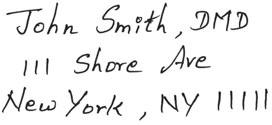 John Smith, DMD
111 Shore Ave
New York, NY 11111